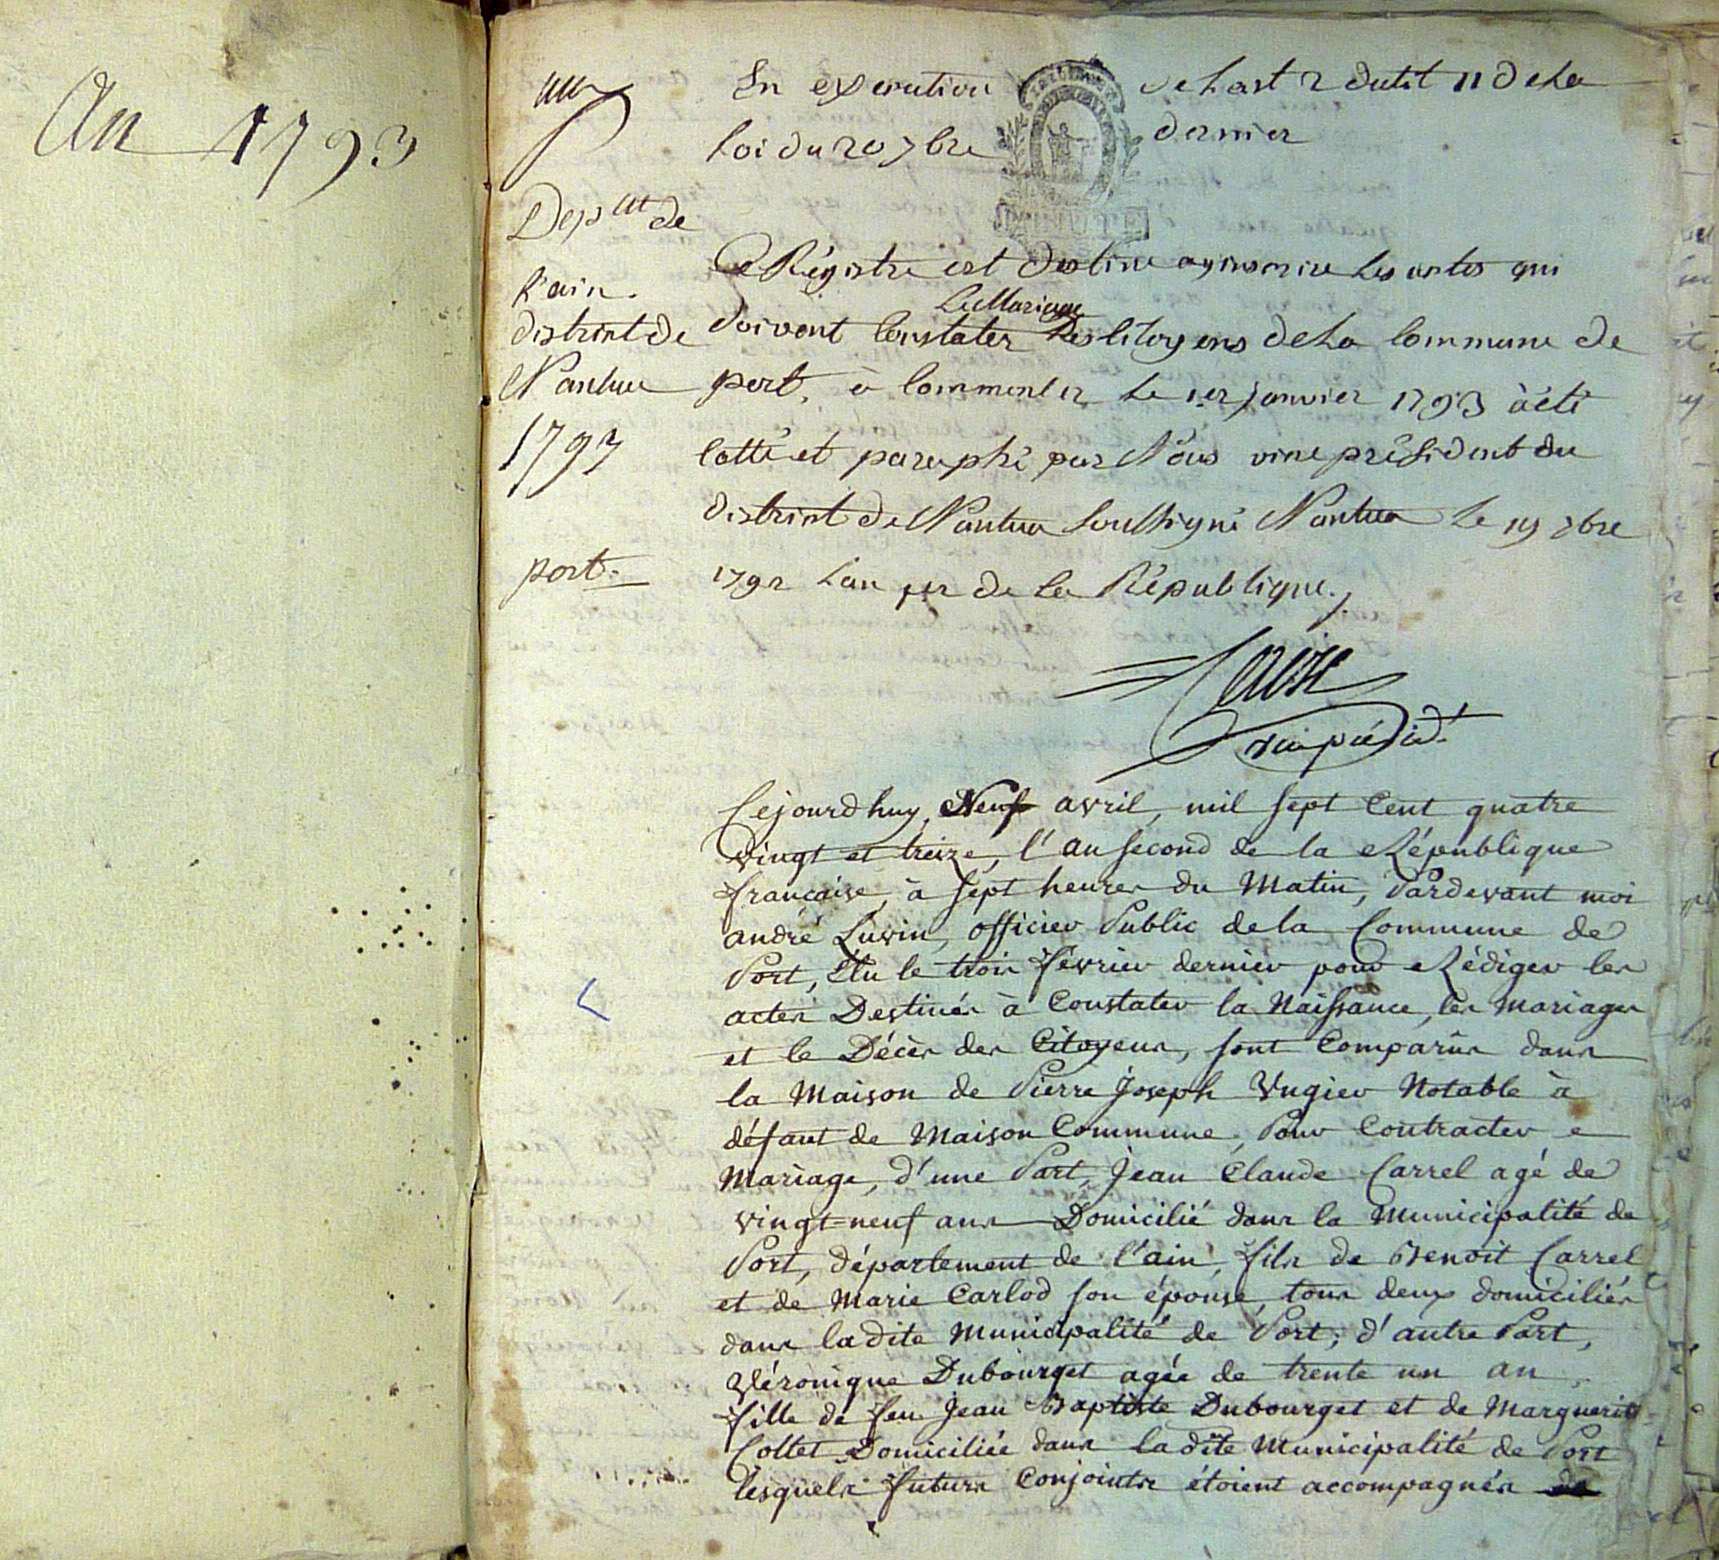 An 1793
un
En execution de L'art 2 du tit 11 de La
Loi du 20 7bre dernier
Dep.nt de
L'ain.
district de
Nantua
1793
port.
Ce Régistre est destiné a y inscrire Les actes qui
doivent Constater Le Mariage des Citoyens de La Commune de
port, à Commencer Le 1er janvier 1793 à été
Cotté et paraphé par Nous vice président du
district de Nantua Soussigné Nantua Le 19 xbre
1792 L'an 1er de la République.
vice présid.t
Cejourdhuy, Neuf avril, mil Sept Cent quatre
vingt et treize, l'an Second de la République
française, à Sept heures du Matin, Pardevant moi
andré Luvin, officier Public de la Commune de
Port, Elu le trois février dernier pour Rédiger les
actes Destinés à Constater la Naissance, les mariages
et le Décès des Citoyens, Sont Comparûs dans
la Maison de Pierre Joseph Vugier Notable à
défaut de Maison Commune, Pour Contracter
Mariage, d'une Part, Jean Claude Carrel agé de
vingt-neuf ans Domicilié dans la Municipalité de
Port, département de l'ain, fils de Benoit Carrel
et de Marie Carlod son épouse, tous deux domiciliés
dans ladite Municipalité de Port; d'autre Part,
Véronique Dubourget agée de trente un an
fille de feu Jean Baptiste Dubourget et de Marguerite
Collet Domiciliée dans la dite Municipalité de Port
lesquels futurs Conjoints étoient accompagnés